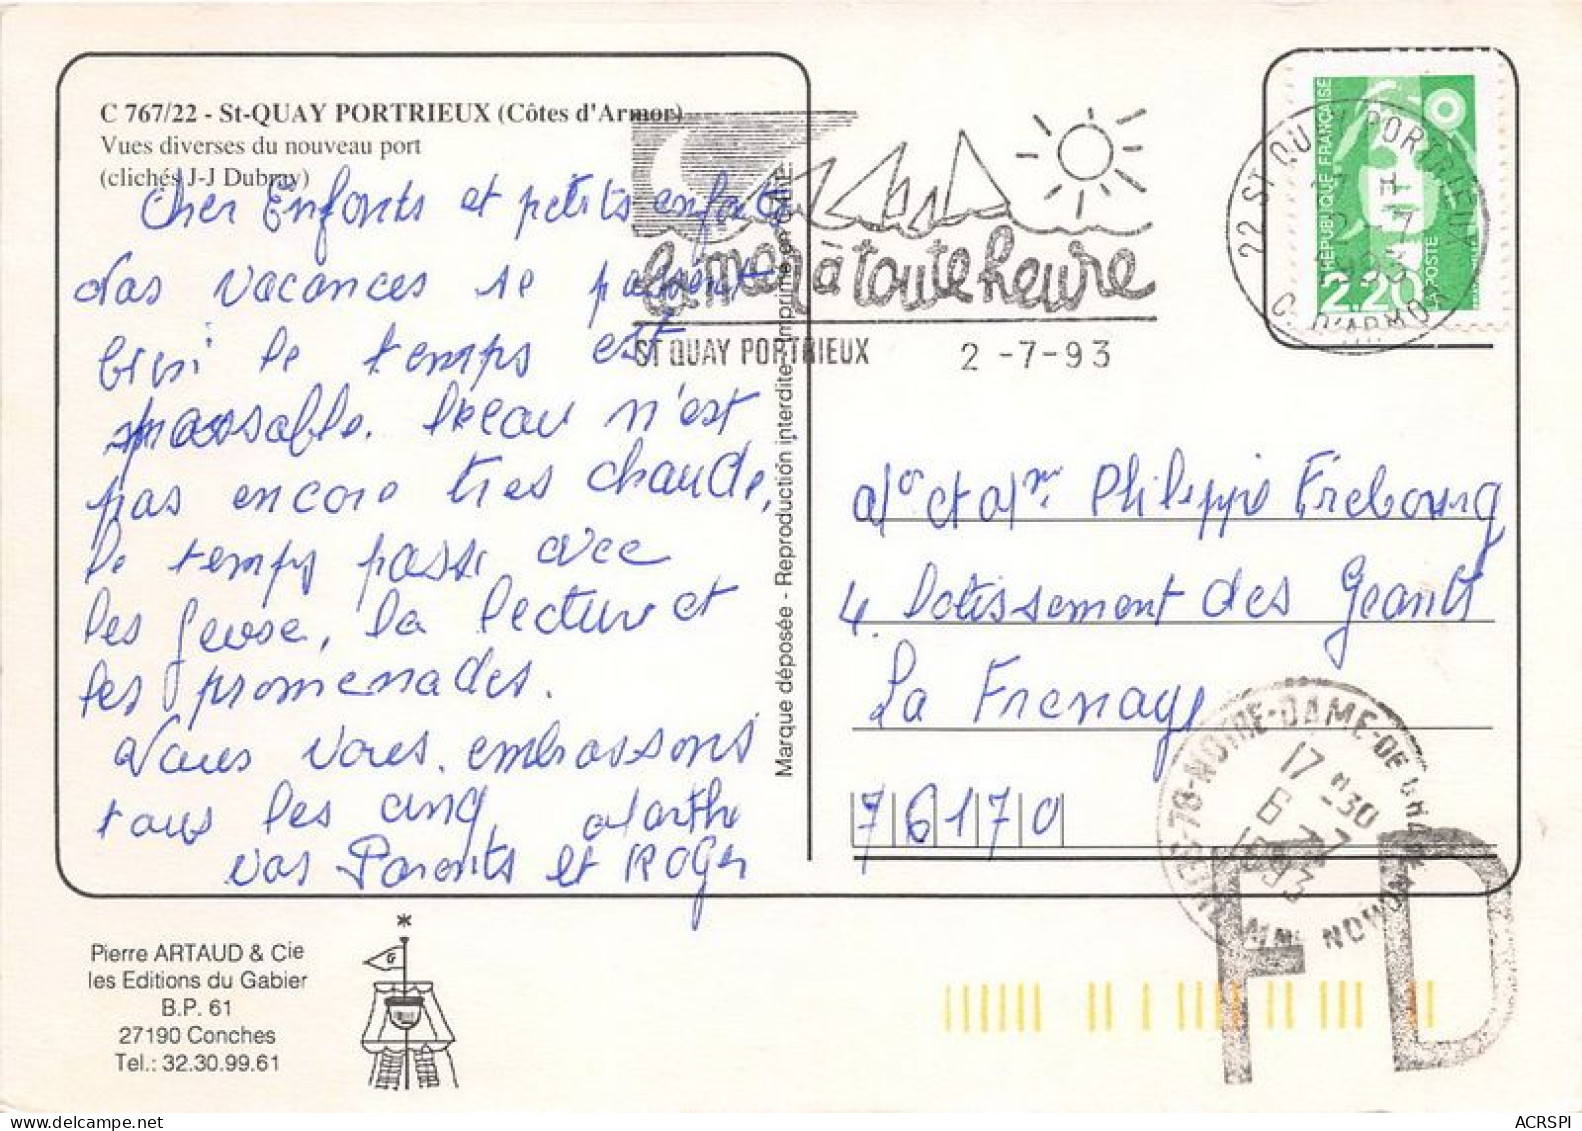 C 767/22 - St-QUAY PORTRIEUX (Côtes d'Armor)
Vues diverses du nouveau port
(clichés J-J Dubray)
Cher Enfants et petits enfants
das vacances se passent
bien le temps est
maussable. l'eeau n'est
pas encore tres chaude,
le temps passe avec
les , la lecture et
les promenades.
Nous vous embrassons
tous les cinq Marthe
vos Parents et ROGer
Pierre ARTAUD & Cie
les Editions du Gabier
B.P. 61
27190 Conches
Tel.: 32.30.99.61
G
Marque déposée - Reproduction interdite - Imprimé en C.E.E.
la mer à toute heure
ST QUAY PORTRIEUX 2 -7-93
22 ST QUAY PORTRIEUX
C. D'ARMOR
REPUBLIQUE FRANÇAISE
2.20
LA POSTE
Mr et Mme Philippe Frebourg
4. Lotissement des Geants
La Frenaye
76170
76-NOTRE-DAME-DE GRAVENCHON
17 H 30
6 - 7
1993
FD
ACRSPI